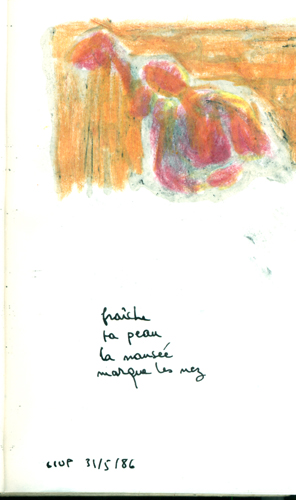 fraîche
ta peau
la nausée
marque les nez
CIUP 31/5/86